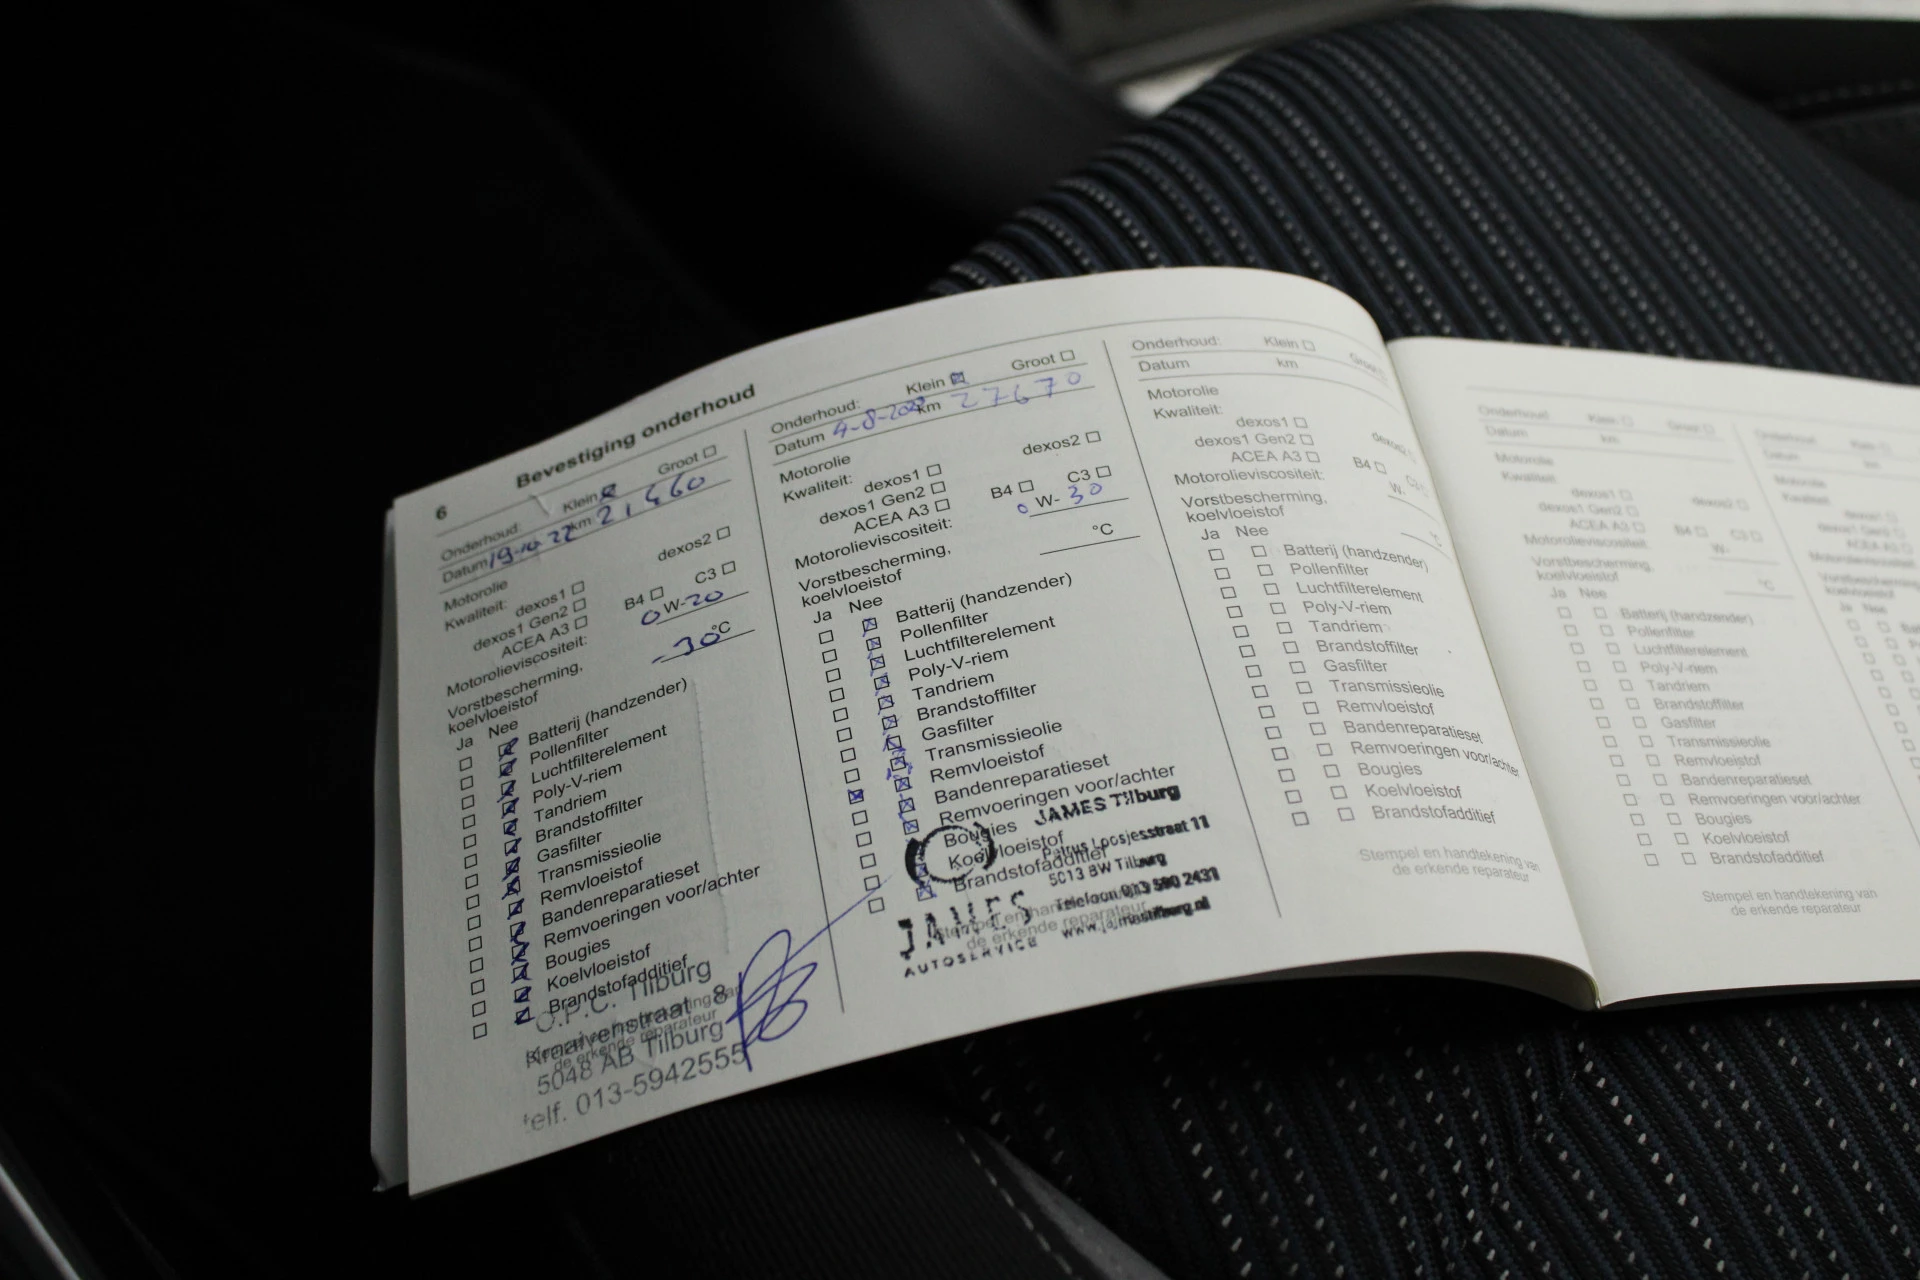 6 Bevestiging onderhoud
Onderhoud: Klein Groot
Datum 19-10 22 km 21460
Motorolie
Kwaliteit: dexos1 dexos2
dexos1 Gen2
ACEA A3 B4 C3
Motorolieviscositeit: 0 W-20
Vorstbescherming,
koelvloeistof -30 °C
Ja Nee
Batterij (handzender)
Pollenfilter
Luchtfilterelement
Poly-V-riem
Tandriem
Brandstoffilter
Gasfilter
Transmissieolie
Remvloeistof
Bandenreparatieset
Remvoeringen voor/achter
Bougies
Koelvloeistof
Brandstofadditief
O.P.C. Tilburg
Kraaivenstraat 8
5048 AB Tilburg
telf. 013-5942555
de erkende reparateur
Onderhoud: Klein Groot
Datum 4-8-2022 km 27670
Motorolie
Kwaliteit: dexos1 dexos2
dexos1 Gen2
ACEA A3 B4 C3
Motorolieviscositeit: 0 W- 30
Vorstbescherming,
koelvloeistof °C
Ja Nee
Batterij (handzender)
Pollenfilter
Luchtfilterelement
Poly-V-riem
Tandriem
Brandstoffilter
Gasfilter
Transmissieolie
Remvloeistof
Bandenreparatieset
Remvoeringen voor/achter
Bougies
Koelvloeistof
Brandstofadditief
JAMES Tilburg
Petrus Loosjesstraat 11
5013 BW Tilburg
Telefoon 013 580 2431
www.jamestilburg.nl
JAMES
AUTOSERVICE
Stempel en handtekening van
de erkende reparateur
Onderhoud: Klein Groot
Datum km
Motorolie
Kwaliteit: dexos1 dexos2
dexos1 Gen2
ACEA A3 B4 C3
Motorolieviscositeit: W-
Vorstbescherming,
koelvloeistof °C
Ja Nee
Batterij (handzender)
Pollenfilter
Luchtfilterelement
Poly-V-riem
Tandriem
Brandstoffilter
Gasfilter
Transmissieolie
Remvloeistof
Bandenreparatieset
Remvoeringen voor/achter
Bougies
Koelvloeistof
Brandstofadditief
Stempel en handtekening van
de erkende reparateur
Onderhoud: Klein Groot
Datum km
Motorolie
Kwaliteit:
dexos1 dexos2
dexos1 Gen2
ACEA A3 B4 C3
Motorolieviscositeit: W-
Vorstbescherming,
koelvloeistof °C
Ja Nee
Batterij (handzender)
Pollenfilter
Luchtfilterelement
Poly-V-riem
Tandriem
Brandstoffilter
Gasfilter
Transmissieolie
Remvloeistof
Bandenreparatieset
Remvoeringen voor/achter
Bougies
Koelvloeistof
Brandstofadditief
Stempel en handtekening van
de erkende reparateur
Onderhoud: Klein
Datum km
Motorolie
Kwaliteit:
Ja Nee